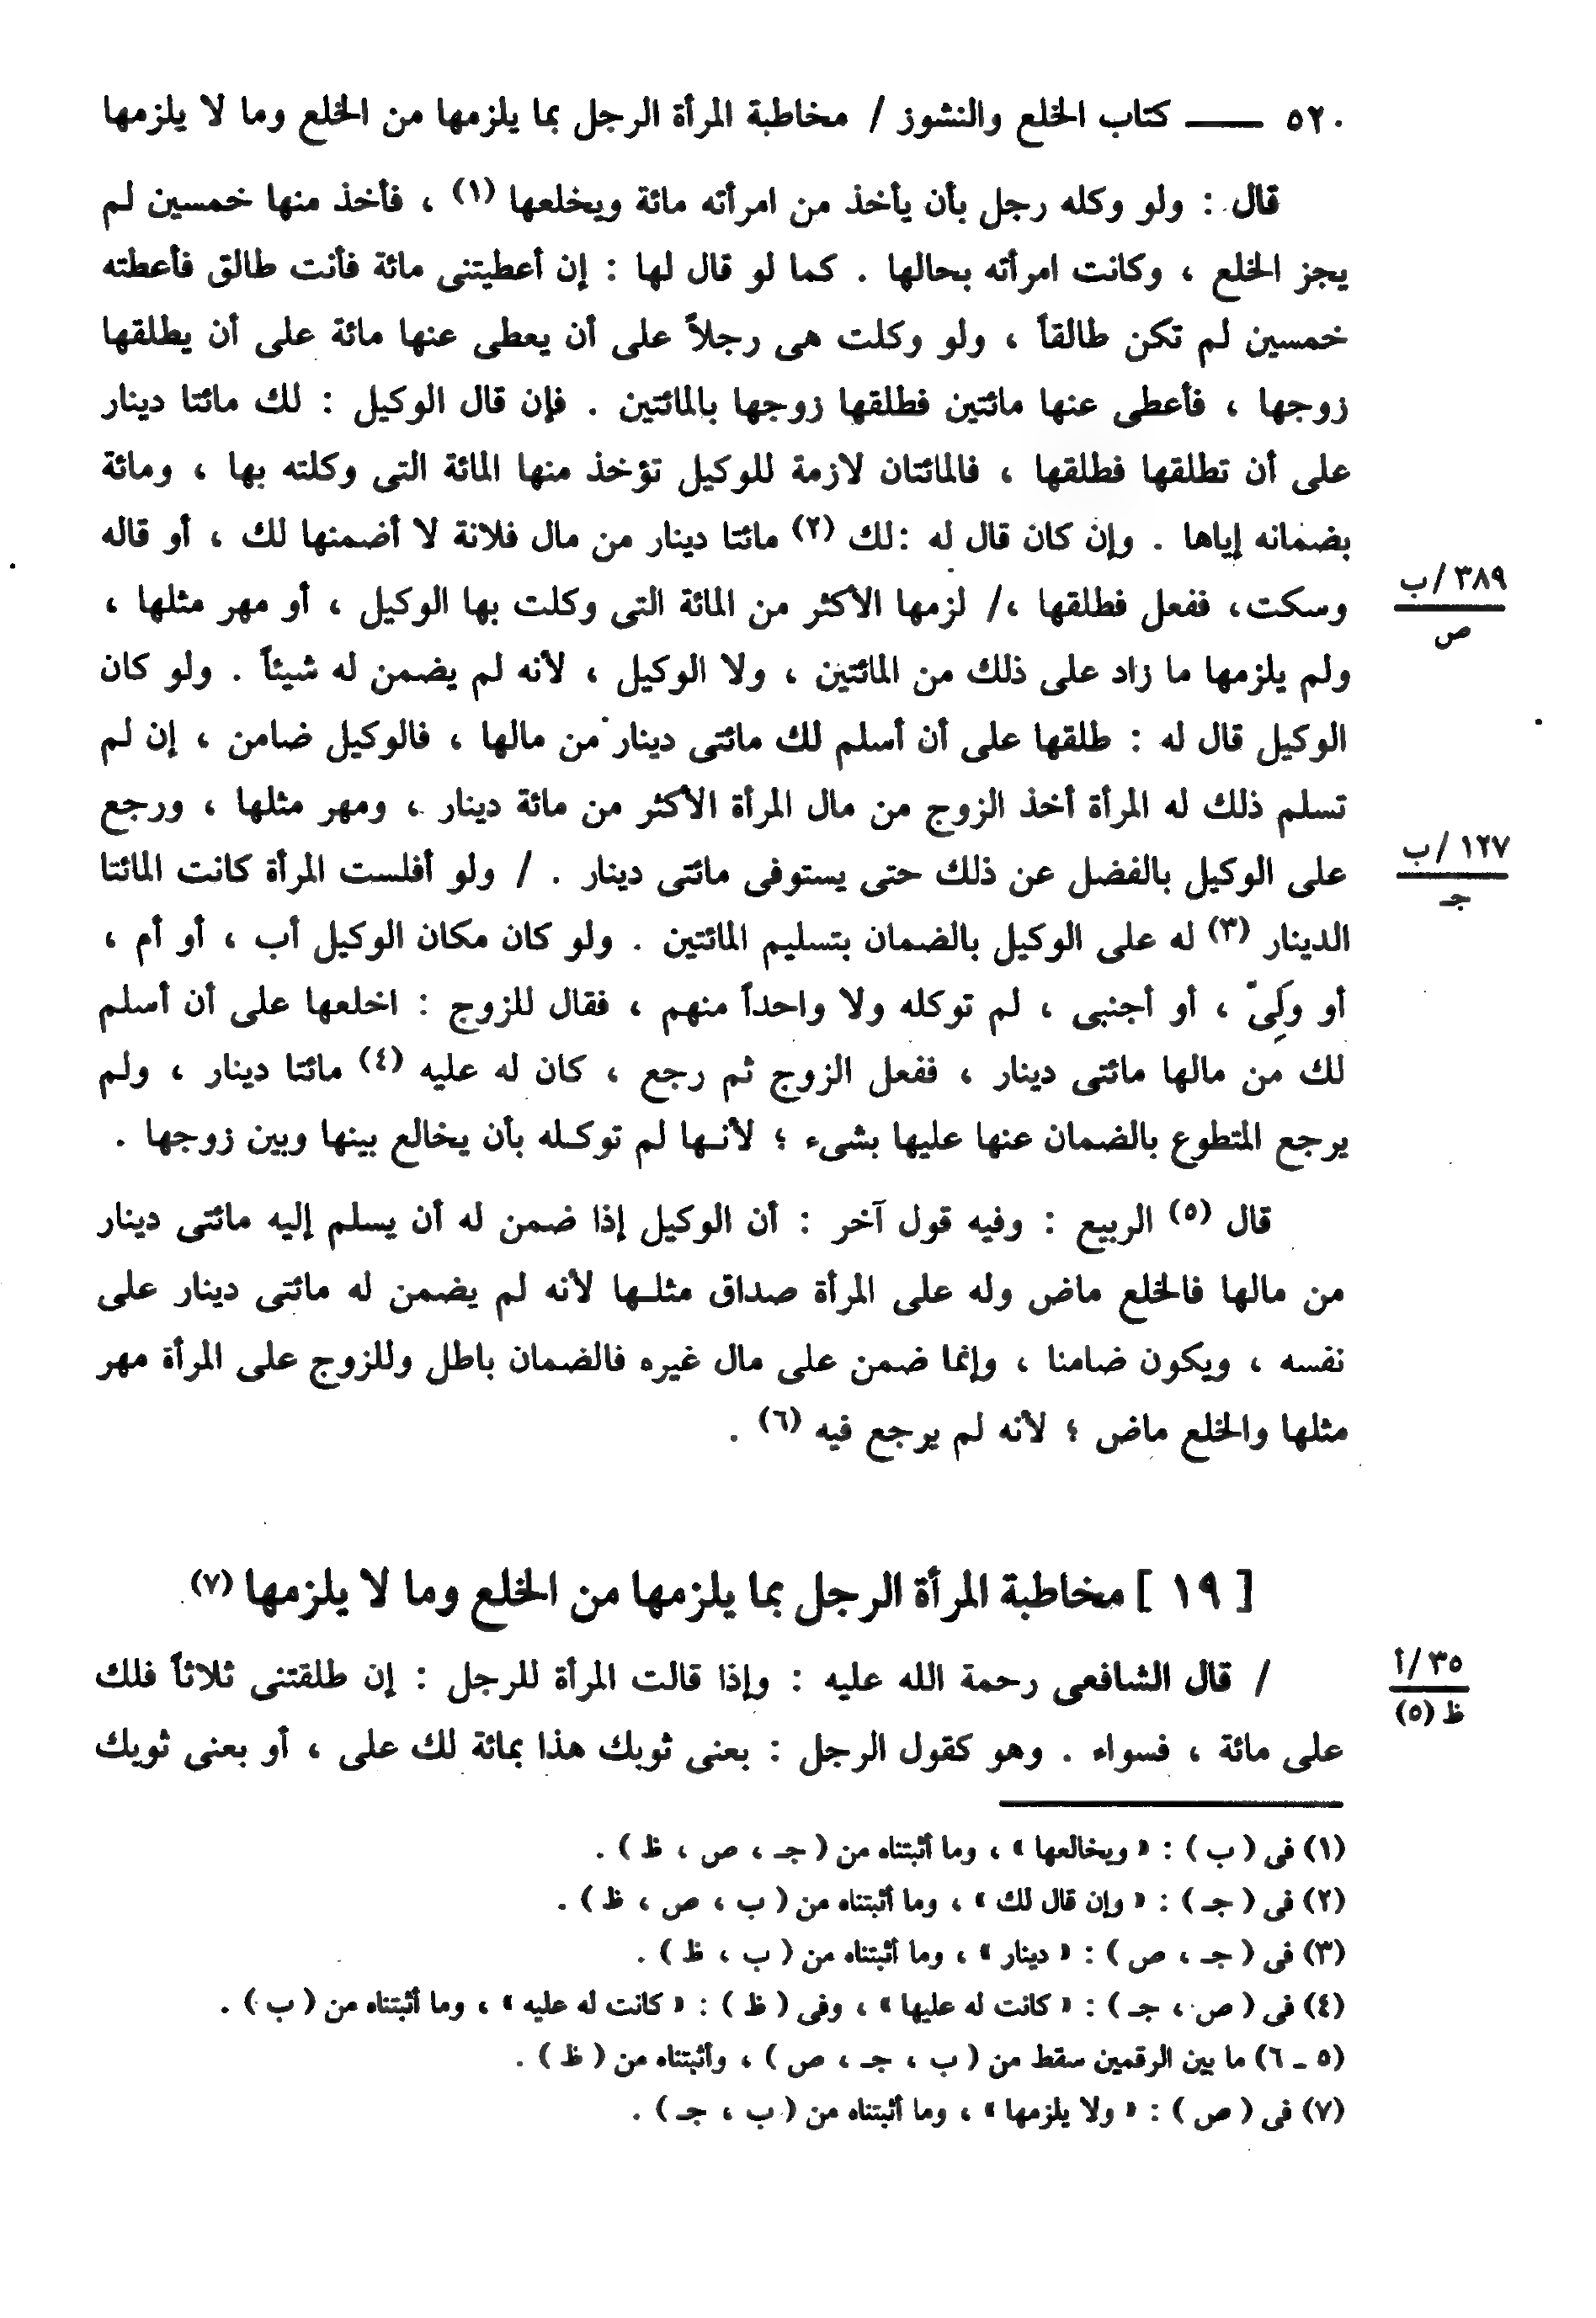 ٥٢٠ ــــ كتاب الخلع والنشوز / مخاطبة المرأة الرجل بما يلزمها من الخلع وما لا يلزمها
قال : ولو وكله رجل بأن يأخذ من امرأته مائة ويخلعها (١) ، فأخذ منها خمسين لم
يجز الخلع ، وكانت امرأته بحالها . كما لو قال لها : إن أعطيتنى مائة فأنت طالق فأعطته
خمسين لم تكن طالقاً ، ولو وكلت هى رجلاً على أن يعطى عنها مائة على أن يطلقها
زوجها ، فأعطى عنها مائتين فطلقها زوجها بالمائتين . فإن قال الوكيل : لك مائتا دينار
على أن تطلقها فطلقها ، فالمائتان لازمة للوكيل تؤخذ منها المائة التى وكلته بها ، ومائة
بضمانه إياها . وإن كان قال له :لك (٢) مائتا دينار من مال فلانة لا أضمنها لك ، أو قاله
٣٨٩ /ب
ص
وسكت، ففعل فطلقها ،/ لزمها الأكثر من المائة التى وكلت بها الوكيل ، أو مهر مثلها ،
ولم يلزمها ما زاد على ذلك من المائتين ، ولا الوكيل ، لأنه لم يضمن له شيئاً . ولو كان
الوكيل قال له : طلقها على أن أسلم لك مائتى دينار من مالها ، فالوكيل ضامن ، إن لم
تسلم ذلك له المرأة أخذ الزوج من مال المرأة الأكثر من مائة دينار ، ومهر مثلها ، ورجع
١٢٧ /ب
جـ
على الوكيل بالفضل عن ذلك حتى يستوفى مائتى دينار . / ولو أفلست المرأة كانت المائتا
الدينار (٣) له على الوكيل بالضمان بتسليم المائتين . ولو كان مكان الوكيل أب ، أو أم ،
أو ولَِىّ ، أو أجنبى ، لم توكله ولا واحداً منهم ، فقال للزوج : اخلعها على أن أسلم
لك من مالها مائتى دينار ، ففعل الزوج ثم رجع ، كان له عليه (٤) مائتا دينار ، ولم
يرجع المتطوع بالضمان عنها عليها بشىء ؛ لأنـها لم توكـله بأن يخالع بينها وبين زوجها .
قال (٥) الربيع : وفيه قول آخر : أن الوكيل إذا ضمن له أن يسلم إليه مائتى دينار
من مالها فالخلع ماض وله على المرأة صداق مثلـها لأنه لم يضمن له مائتى دينار على
نفسه ، ويكون ضامنا ، وإنما ضمن على مال غيره فالضمان باطل وللزوج على المرأة مهر
مثلها والخلع ماض ؛ لأنه لم يرجع فيه (٦) .
[ ١٩ ] مخاطبة المرأة الرجل بما يلزمها من الخلع وما لا يلزمها (٧)
٣٥ /أ
ظ (٥)
/ قال الشافعى رحمة الله عليه : وإذا قالت المرأة للرجل : إن طلقتنى ثلاثاً فلك
على مائة ، فسواء . وهو كقول الرجل : بعنى ثوبك هذا بمائة لك على ، أو بعنى ثوبك
(١) فى ( ب ) : « ويخالعها » ، وما أثبتناه من ( جـ ، ص ، ظ ) .
(٢) فى ( جـ ) : « وإن قال لك » ، وما أثبتناه من ( ب ، ص ، ظ ) .
(٣) فى ( جـ ، ص ) : « دينار » ، وما أثبتناه من ( ب ، ظ ) .
(٤) فى ( ص ، جـ ) : « كانت له عليها » ، وفى ( ظ ) : « كانت له عليه » ، وما أثبتناه من ( ب ) .
(٥ ـ ٦) ما بين الرقمين سقط من ( ب ، جـ ، ص ) ، وأثبتناه من ( ظ ) .
(٧) فى ( ص ) : « ولا يلزمها » ، وما أثبتناه من ( ب ، جـ ) .